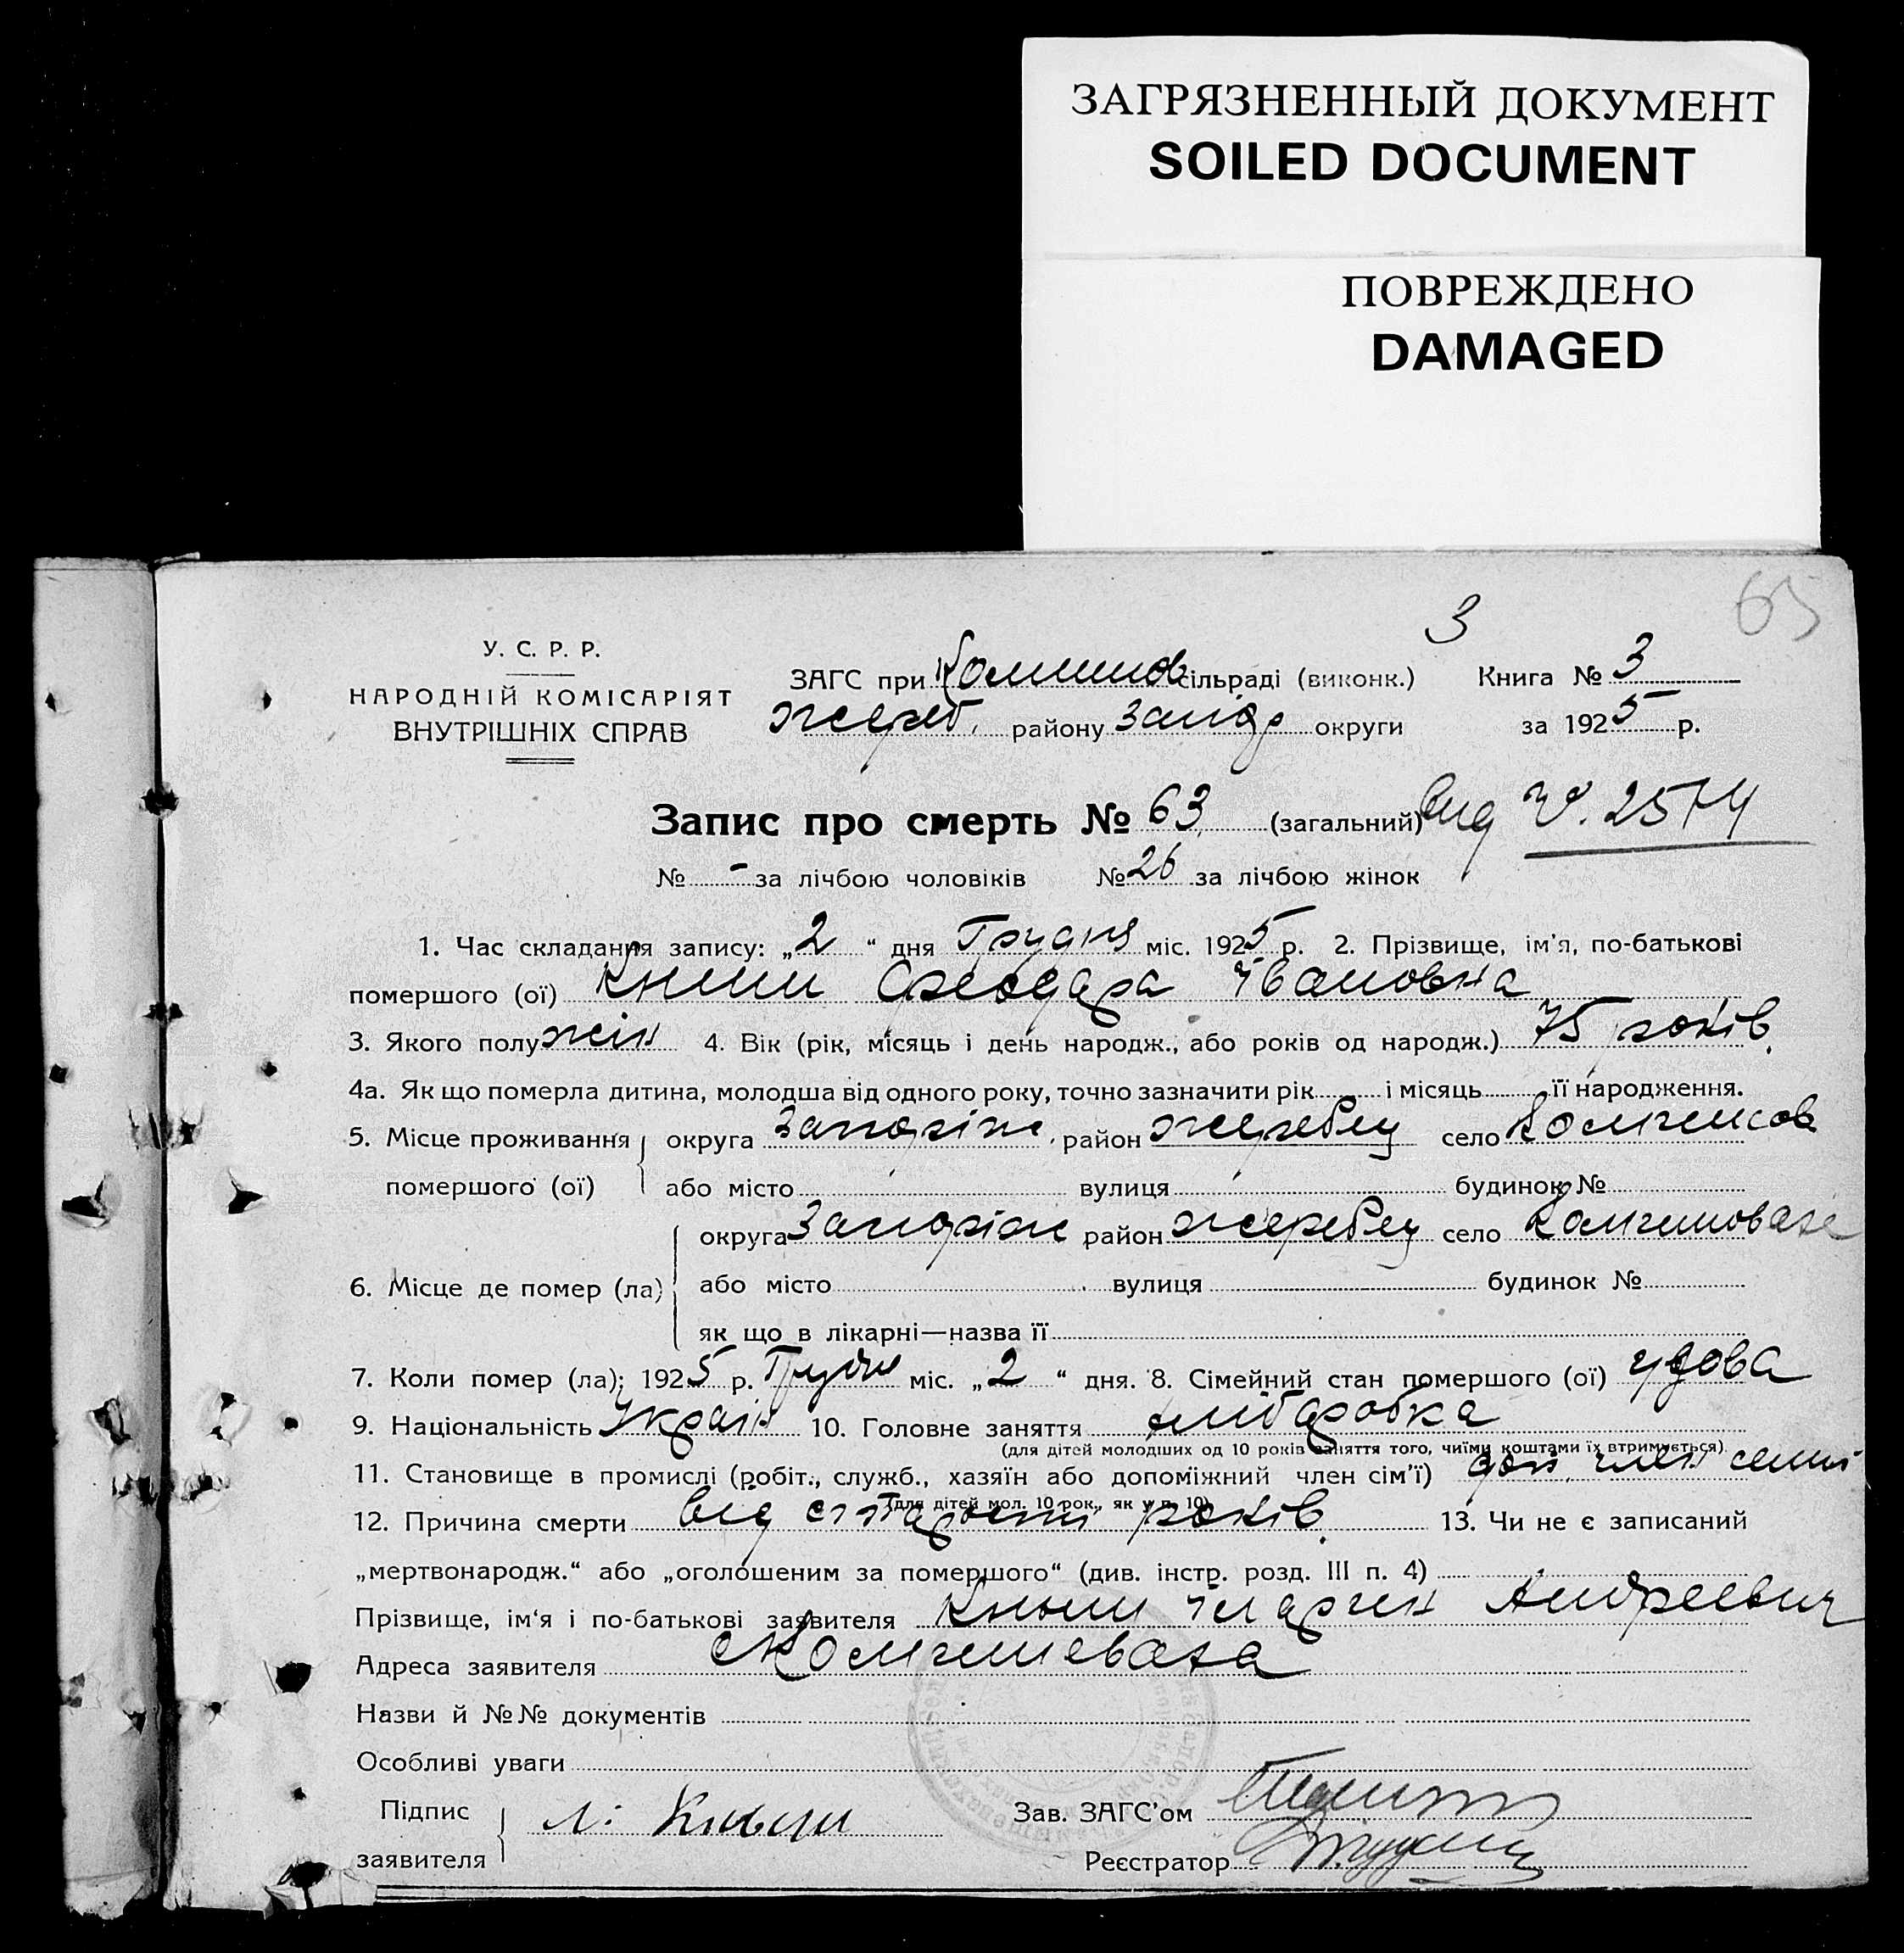 ЗАГРЯЗНЕННЫЙ ДОКУМЕНТ
SOILED DOCUMENT
ПОВРЕЖДЕНО
DAMAGED
65
3
У. С. Р. Р.
НАРОДНІЙ КОМІСАРІЯТ
ВНУТРІШНІХ СПРАВ
ЗАГС при Комишов сільраді (виконк.) Книга № 3
жереб. району Запор округи за 1925 р.
Запис про смерть № 63 (загальний)
№ - за лічбою чоловіків № 26 за лічбою жінок
1. Час складання запису: „2“ дня Грудня міс. 1925 р. 2. Прізвище, ім'я, по-батькові
помершого (ої) Книш Феодора Івановна
3. Якого полу жін 4. Вік (рік, місяць і день народж., або років од народж.) 75 років.
4а. Як що померла дитина, молодша від одного року, точно зазначити рік і місяць її народження.
5. Місце проживання помершого (ої) округа Запоріж. район жеребец село Комишов
або місто вулиця будинок №
6. Місце де помер (ла) округа Запоріж район жеребец село Комишоваха
або місто вулиця будинок №
як що в лікарні—назва її
7. Коли помер (ла): 1925 р. Грудня міс. „2“ дня. 8. Сімейний стан помершого (ої) удова
9. Національність Україн 10. Головне заняття хліборобка
(для дітей молодших од 10 років заняття того, чиїми коштами їх втримується)
11. Становище в промислі (робіт., служб., хазяїн або допоміжний член сім'ї) доп. член семьї
(для дітей мол. 10 рок., як у п. 10)
12. Причина смерти від старости років. 13. Чи не є записаний
„мертвонародж.“ або „оголошеним за помершого“ (див. інстр. розд. III п. 4)
Прізвище, ім'я і по-батькові заявителя Книш Андреевич
Адреса заявителя с Комишеваха
Назви й №№ документів
Особливі уваги
Підпис заявителя Книш Зав. ЗАГС'ом
Реєстратор